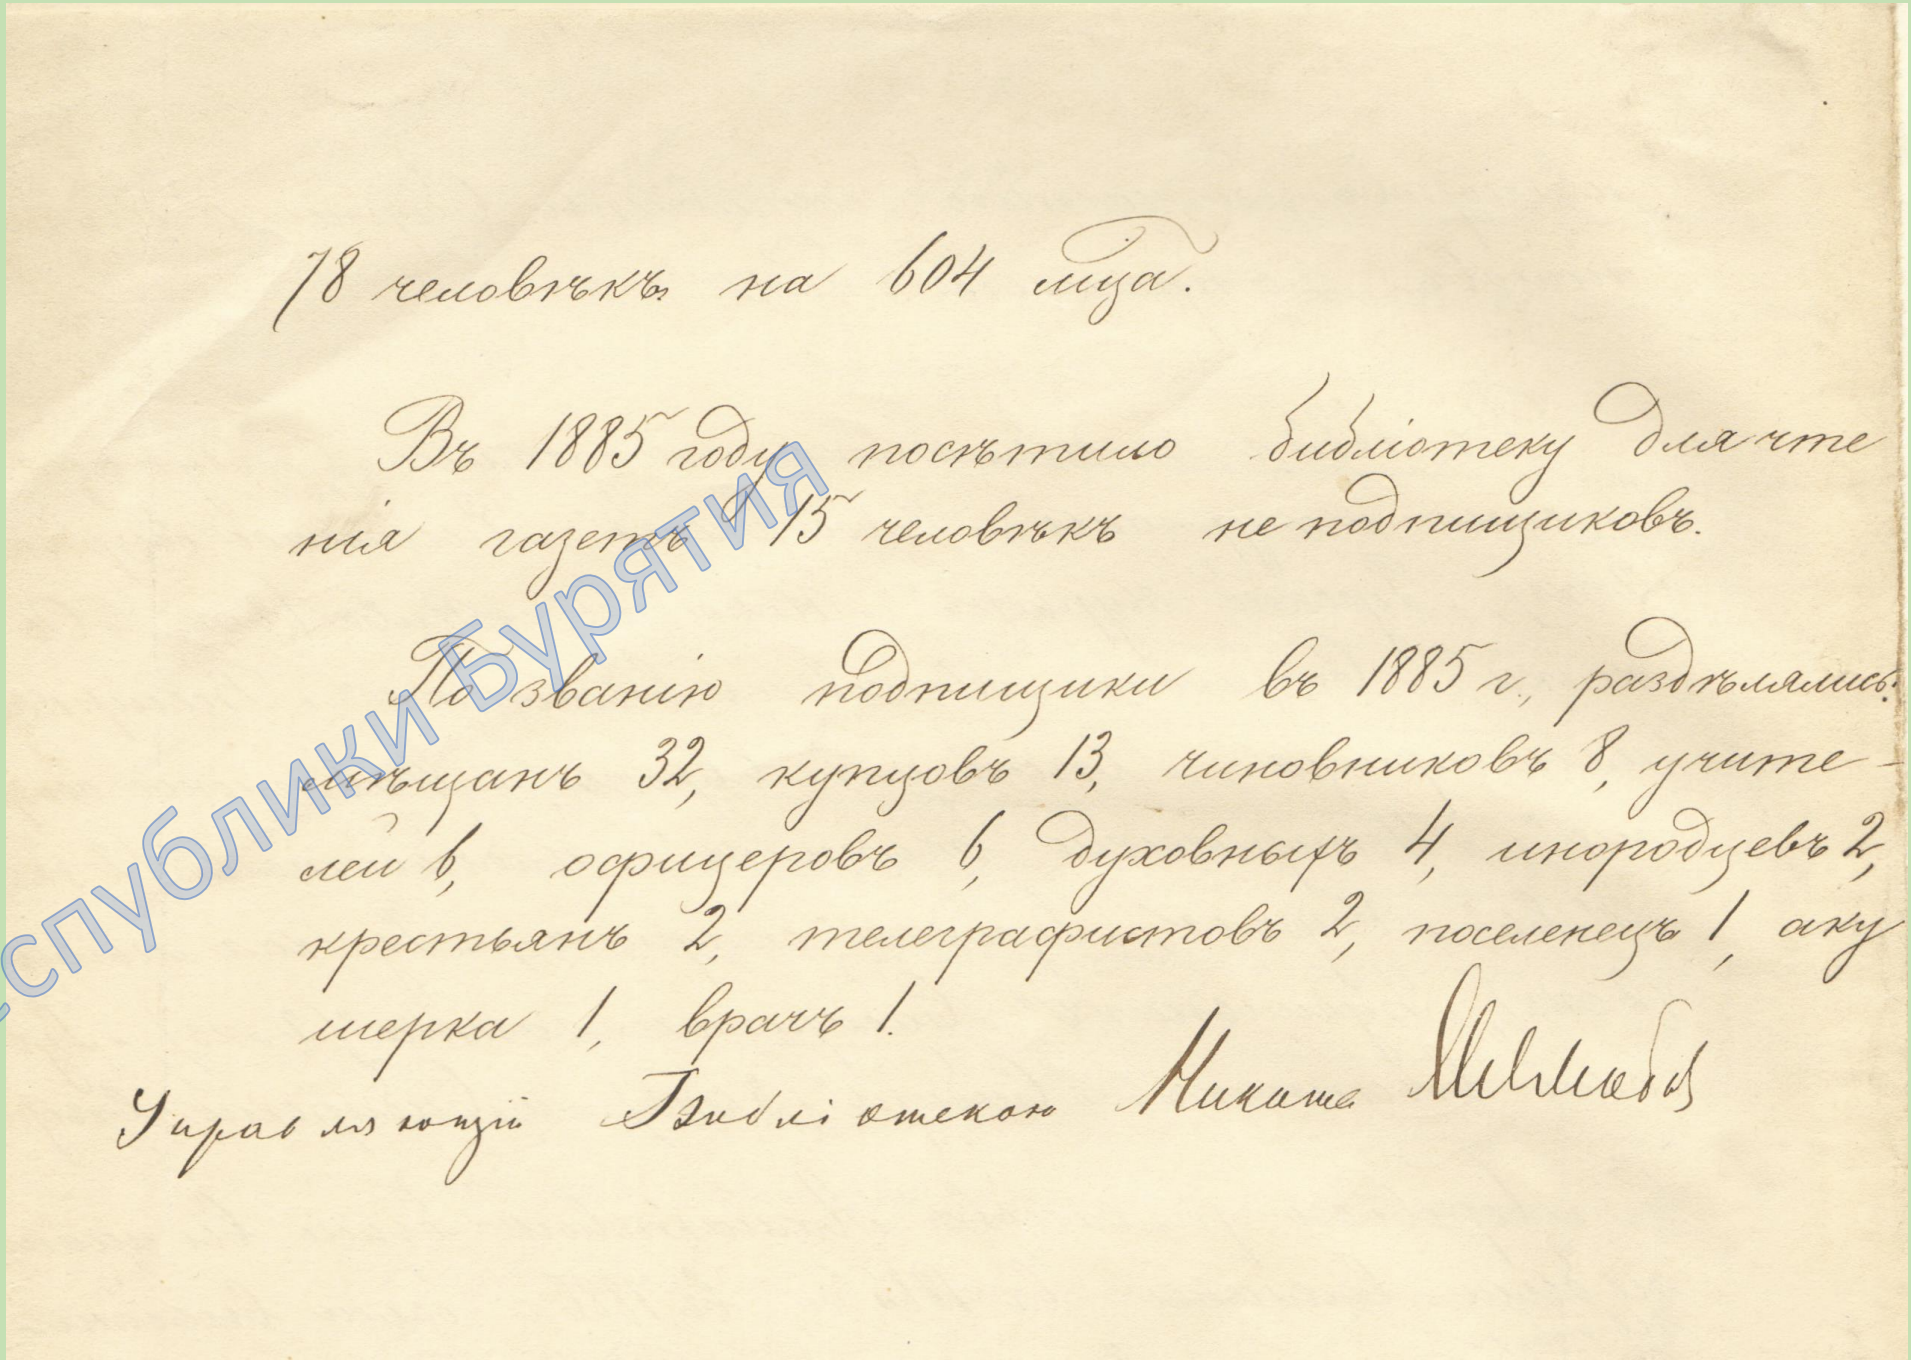 78 человѣкъ на 604 мца.
Въ 1885 году посѣтило библіотеку для чте
нія газетъ 15 человѣкъ не подпищиковъ.
По званію подпищики въ 1885 г., раздѣлялись:
мѣщанъ 32, купцовъ 13, чиновниковъ 8, учите-
лей 6, офицеровъ 6, духовныхъ 4, инородцевъ 2,
крестьянъ 2, телеграфистовъ 2, поселенецъ 1, аку
шерка 1, врачъ 1.
Управляющій Библіотекою Никита
спублики Бурятия